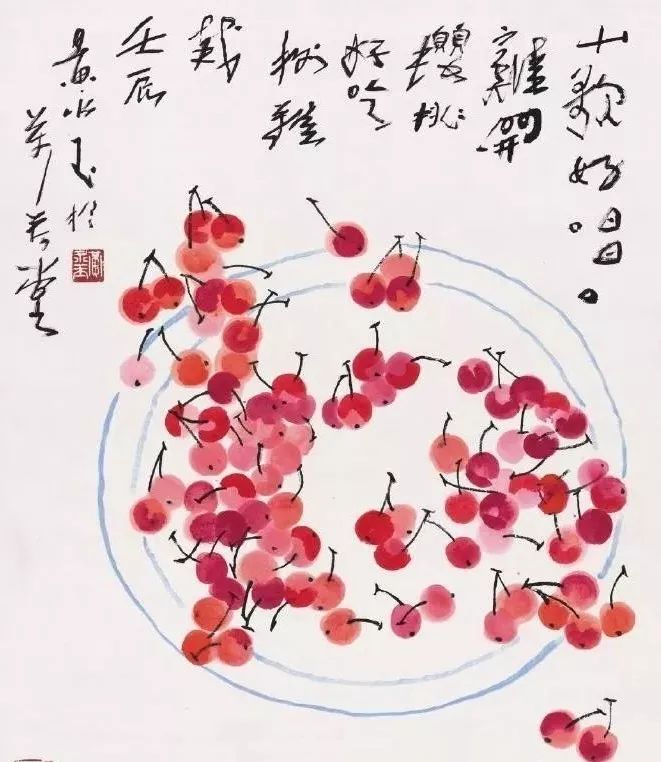 山歌好唱口
難開
櫻桃
好吃
樹難
栽
壬辰
黃永玉於
萬荷堂